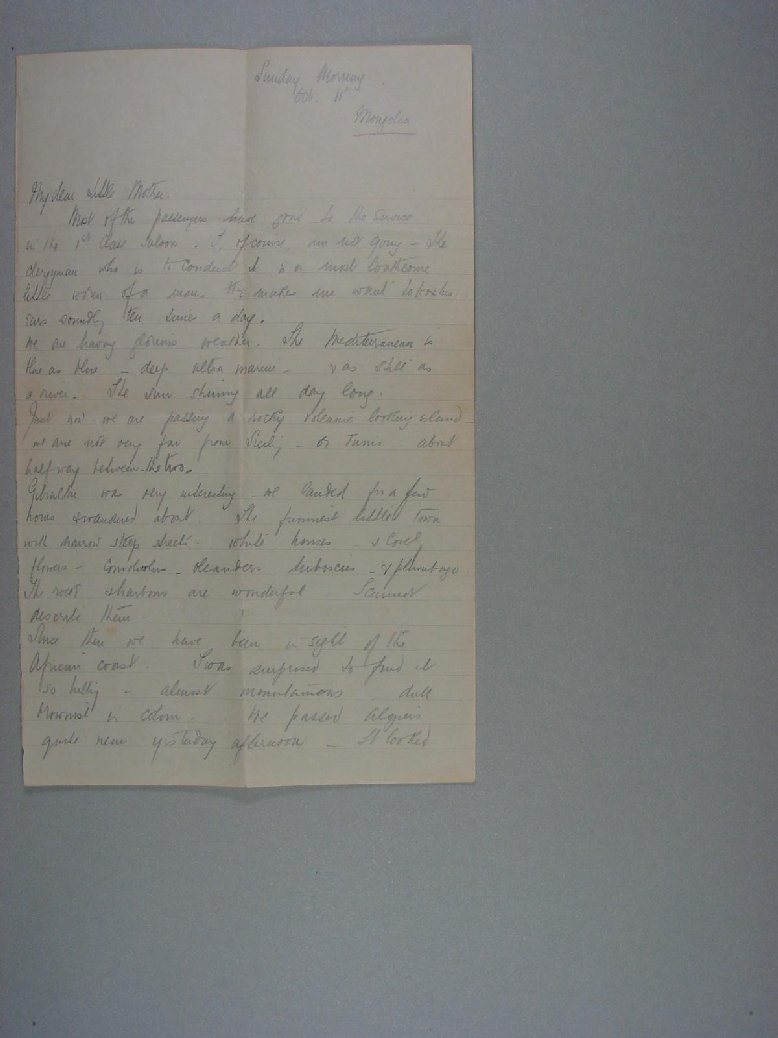 Sunday Morning.
Oct. 11
Mongolia
My dear Little Mother.
Most of the passengers have gone to the service
in the 1st Class Saloon. I, of course, am not going - The
clergyman who is to conduct it is a most loathsome
little worm of a man. He makes me want to box his
ears soundly ten times a day.
We are having glorious weather. The Mediterranean is
blue as blue - deep ultra marine - & as still as
a river. The sun shining all day long.
Just now we are passing a rocky volcanic looking island
we are not very far from Sicily - or Tunis about
half way between the two.
Gibraltar was very interesting - we landed for a few
hours & wandered about. The funniest little town
with narrow steep streets - white houses - & lovely
flowers - oleanders hibiscus - & plumbago.
The rock & harbour are wonderful I cannot
describe them.
Since then we have been in sight of the
African coast. I was surprised to find it
so hilly - almost mountainous dull
brownish in colour. We passed Algiers
quite near yesterday afternoon - It looked